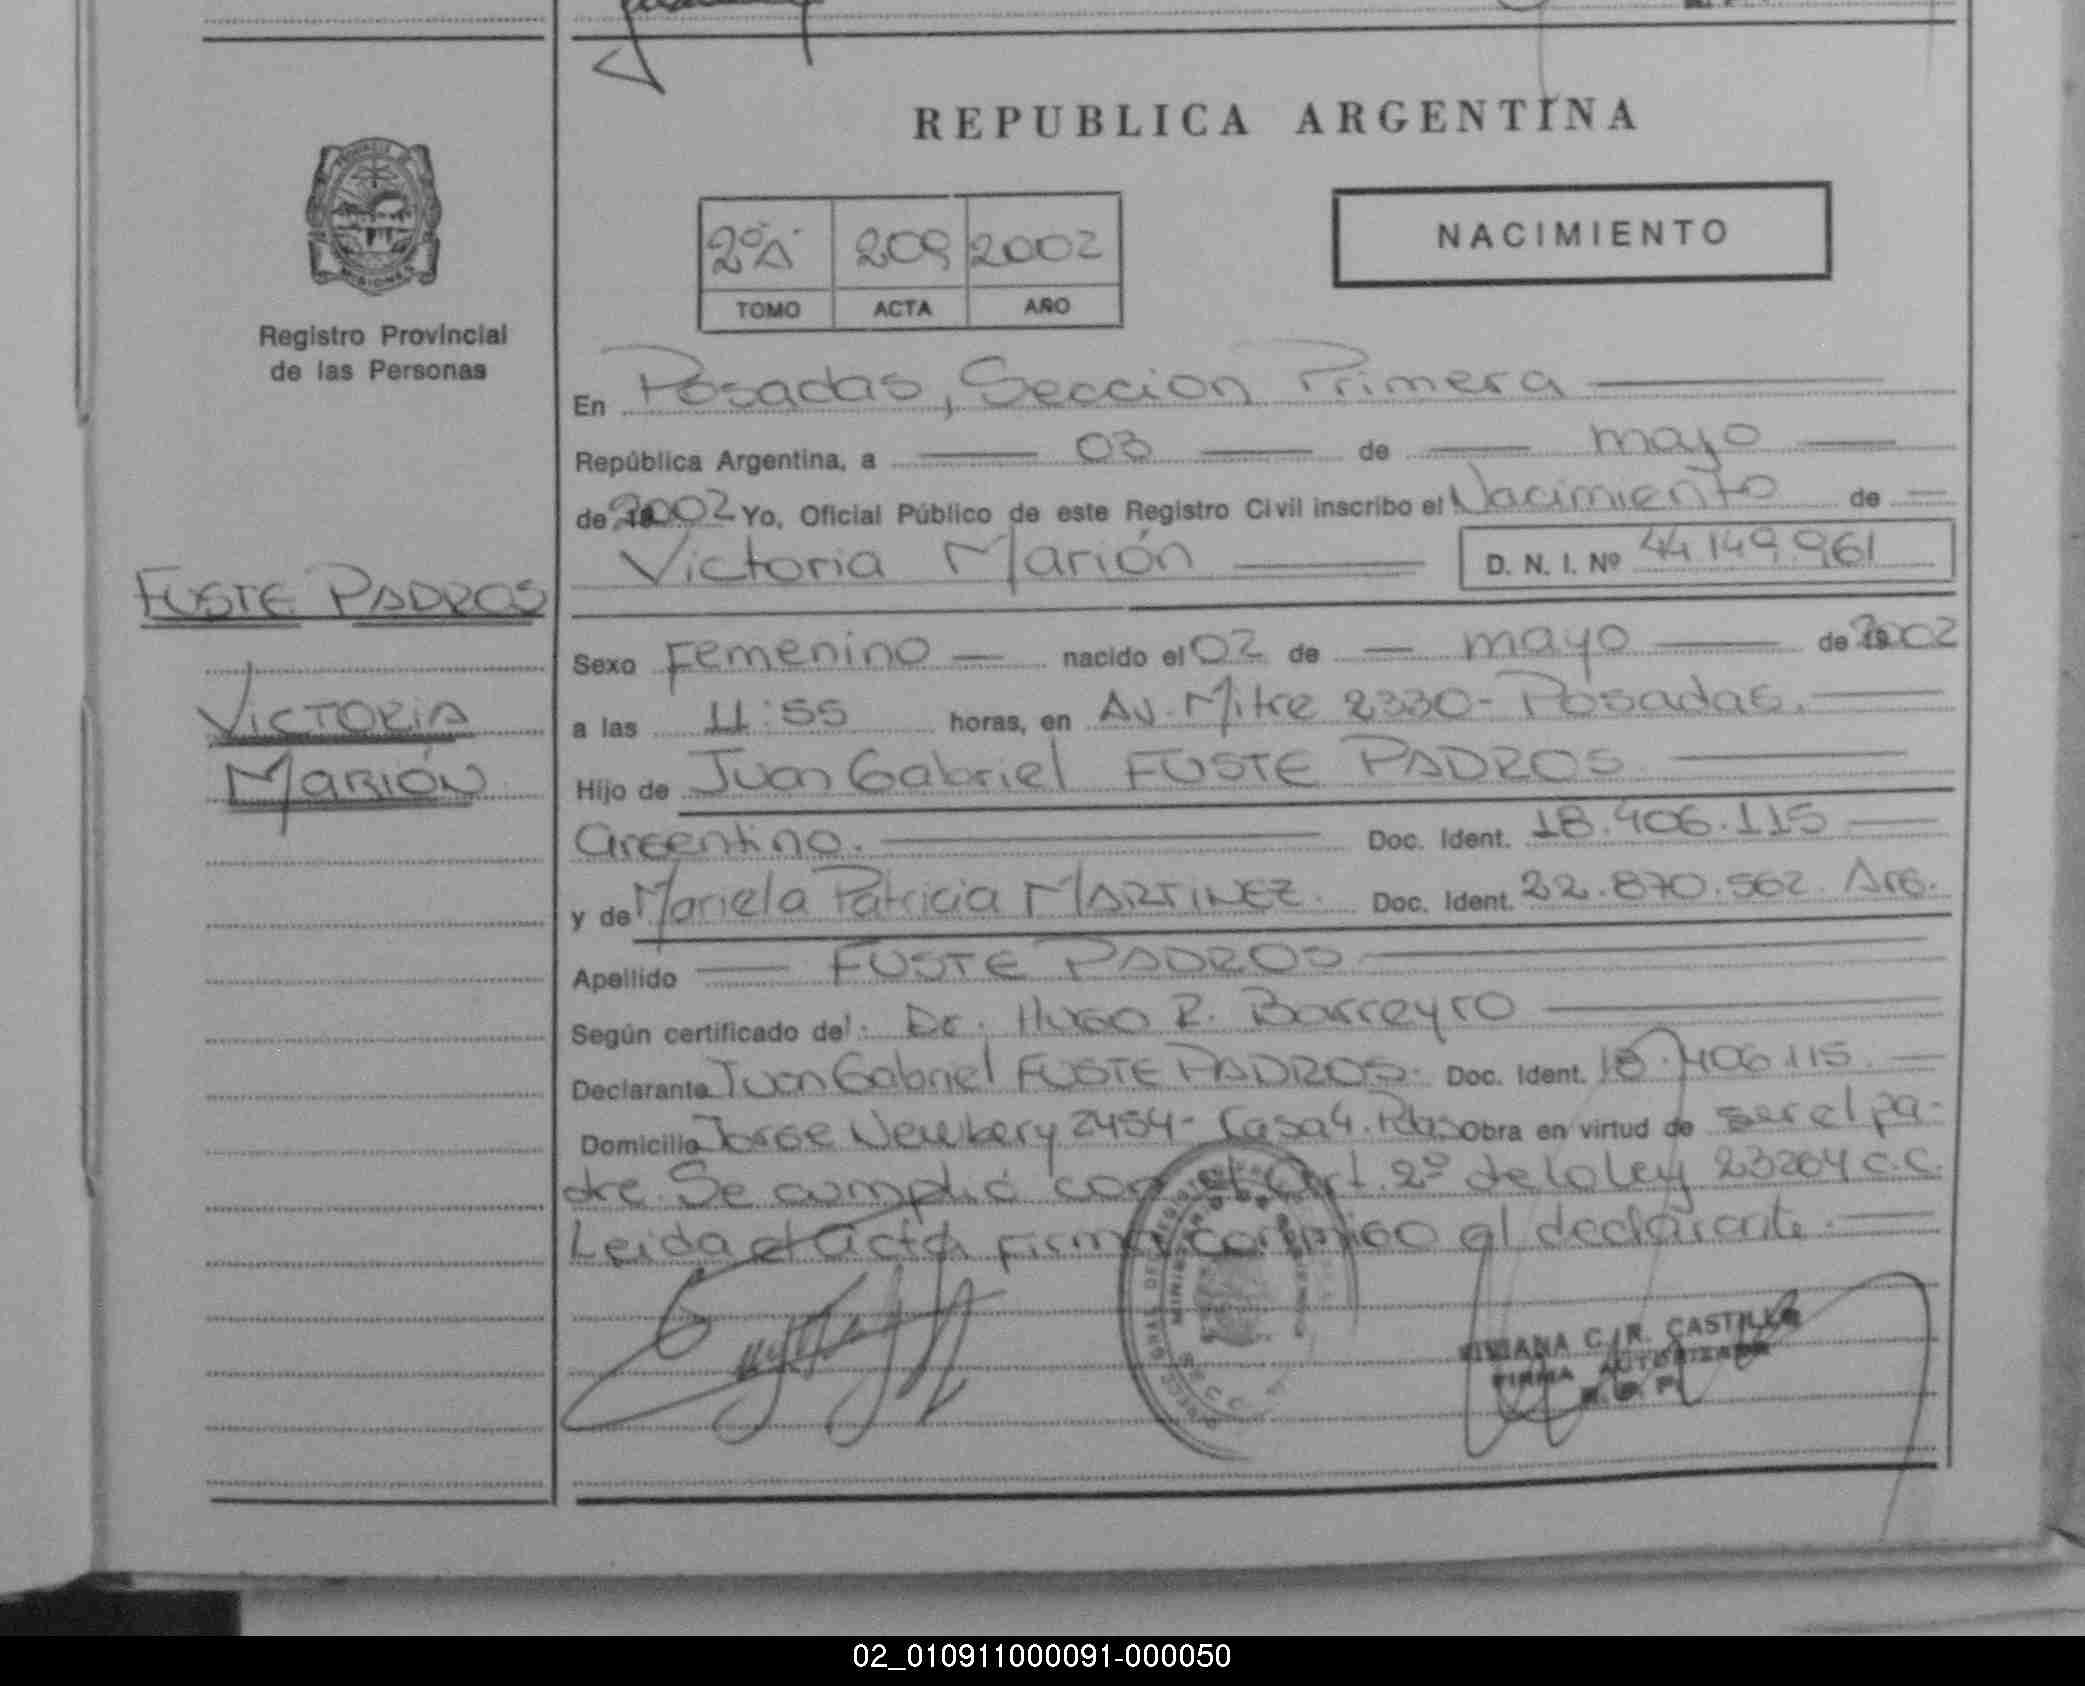 REPUBLICA ARGENTINA
NACIMIENTO
2º A 209 2002
TOMO ACTA AÑO
Registro Provincial
de las Personas
FUSTE PADROS
VICTORIA
MARIÓN
En Posadas, Seccion Primera
República Argentina, a 03 de mayo
de 2002 Yo, Oficial Público de este Registro Civil inscribo el Nacimiento de
Victoria Marión D. N. I. Nº 44149.961
Sexo Femenino nacido el 02 de mayo de 2002
a las 11:55 horas, en Av. Mitre 2330- Posadas.
Hijo de Juan Gabriel FUSTE PADROS
argentino. Doc. Ident. 18.406.115
y de Mariela Patricia MARTINEZ. Doc. Ident. 22.870.562. Arg.
Apellido FUSTE PADROS
Según certificado del: Dr. Hugo R. Barreyro
Declarante Juan Gabriel FUSTE PADROS. Doc. Ident. 18.406.115.
Domicilio Jorge Newbery 2454- Casa 4. Pdas Obra en virtud de ser el pa-
dre. Se cumplió con el Art. 2º de la ley 23264 C.C.
Leida el acta firma conmigo el declarante.
VIVIANA C. R. CASTILLO
FIRMA AUTORIZADA
R. P. P.
02_010911000091-000050